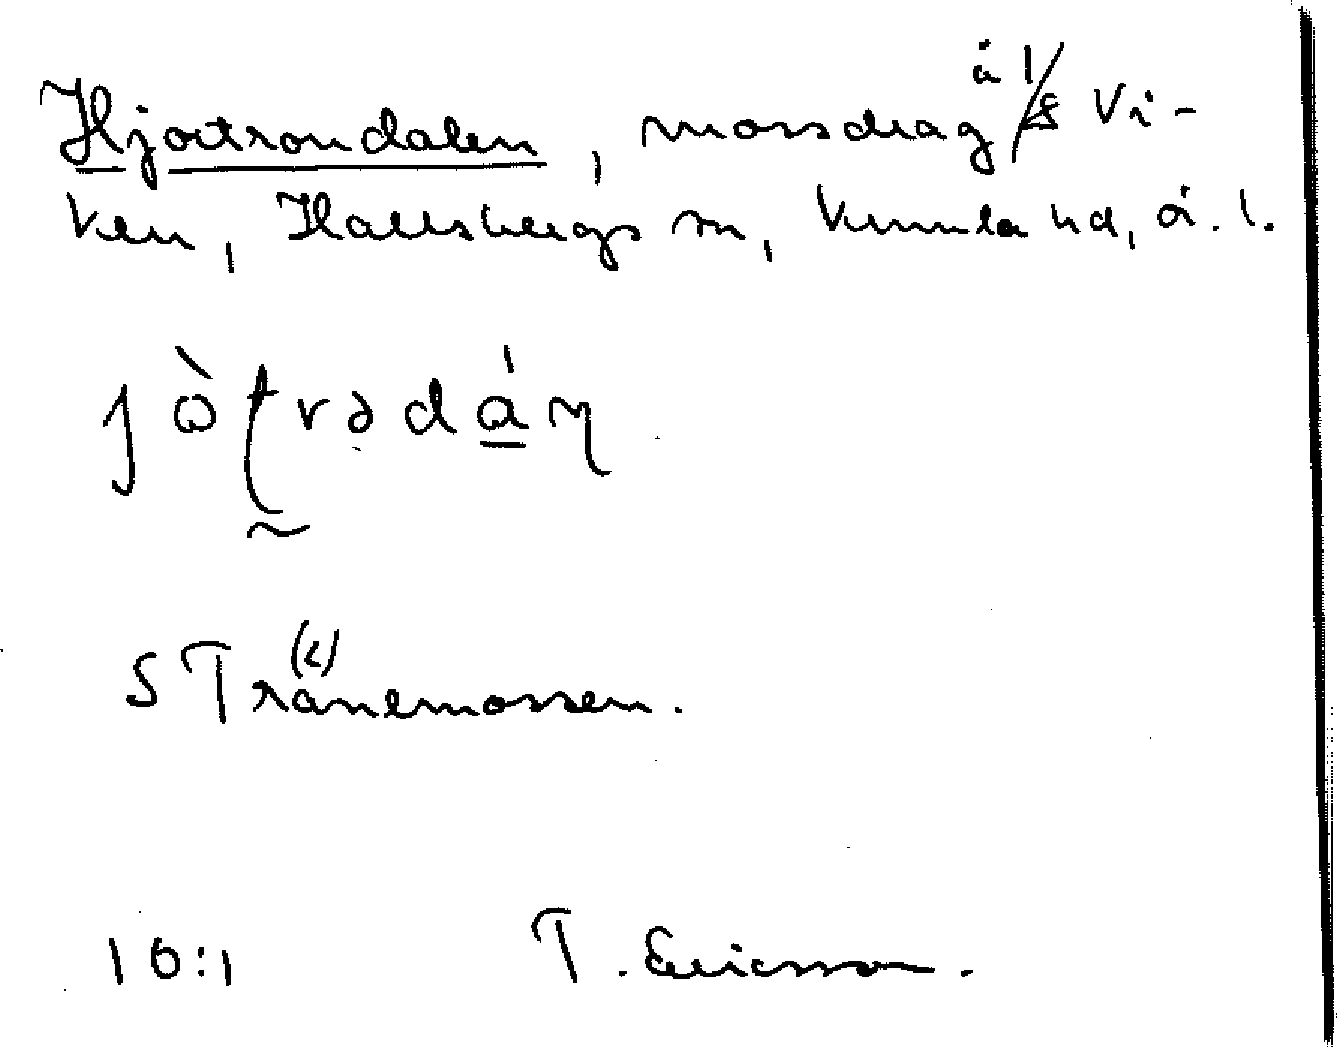 Hjortrondalen, mossdrag å 1/8 Vi-
ken, Hallsbergs sn, Kumla hd, ö. l.
S Tränemossen.
16:1 T. Ericsson.